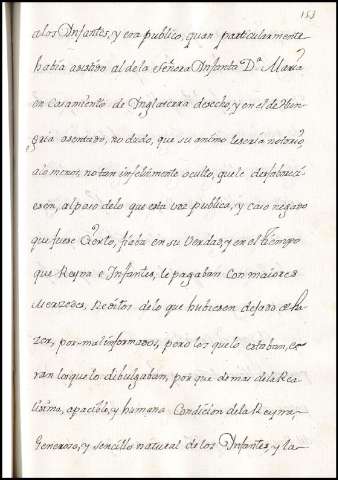 153
a los Ynfantes, y era publico, quan particularmente
habia asistido al de la Señora Ynfanta Dª Maria
en Casamiento de Inglaterra desecho, y en el de Hun-
gria asentado, no dudo, que su animo le seria notorio
a lo menos, no tan infelizmente oculto, que le desfavoreci-
esen, al paso de lo que esta voz publica, y caso negado
que fuese Cierto, fiaba en su Verdad, y en el tiempo
que Reyna e Infantes, le pagaban Con maiores
Mercedes, Reditos de lo que hubiesen dejado de ha-
zer, por mal informados, pero los que lo estaban, e-
ran los que lo dibulgaban, por que demas de la Rea-
lisima, apacible, y humana Condicion de la Reyna,
Generoso, y sencillo natural de los Ynfantes, y la